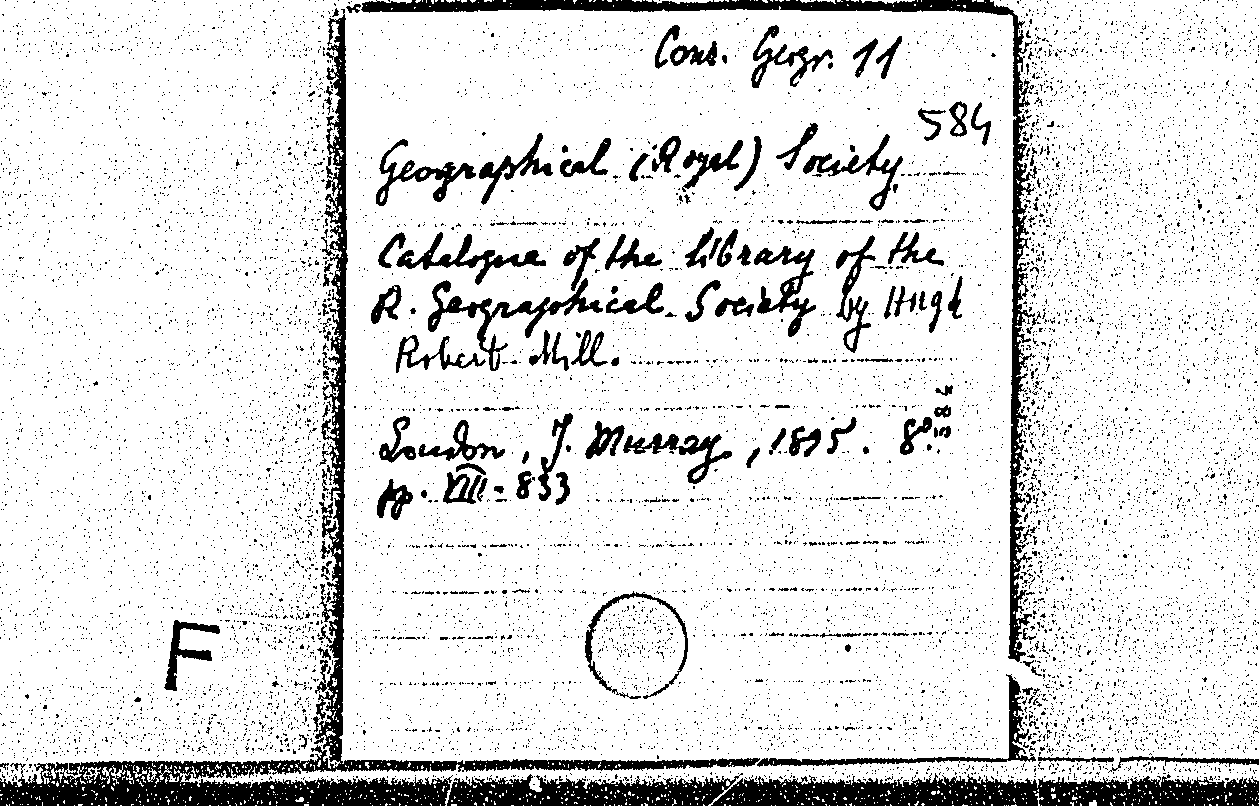 Cons. Geogr. 11
584
Geographical (Royal) Society
Catalogue of the library of the
R. Geographical Society by Hugh
Robert Mill.
London, J. Murray, 1895. 8º.
584
pp. VIII-833
F